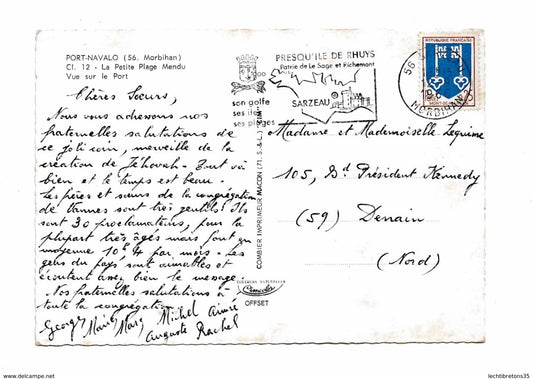 PORT-NAVALO (56. Morbihan)
Cl. 12 - La Petite Plage Mendu
Vue sur le Port
Chères Soeurs,
Nous vous adressons nos
fraternelles salutations de
ce joli coin, merveille de la
création de Jéhovah. Tout va
bien et le temps est beau.
Les frères et soeurs de la congrégation
de Vannes sont très gentils! Ils
sont 30 proclamateurs, pour la
plupart très âgés mais font en
moyenne 10h4 par mois. Les
gens du pays sont aimables et
écoutent assez bien le message.
Nos fraternelles salutations à
toute la congrégation.
Georges Marie Marc Michel Aimée
Auguste Rachel
son golfe
ses îles
ses plages
PRESQU'ILE DE RHUYS
Patrie de Le Sage et Richemont
SARZEAU
COMBIER IMPRIMEUR MACON (71. S.-&-L.) "CIM"
OFFSET
56
MORBIHAN
REPUBLIQUE FRANÇAISE
MONT-DE-MARSAN
Madame et Mademoiselle Lequime
105, Bd Président Kennedy
(59) Denain
(Nord)
www.delcampe.net
lechtibretons35